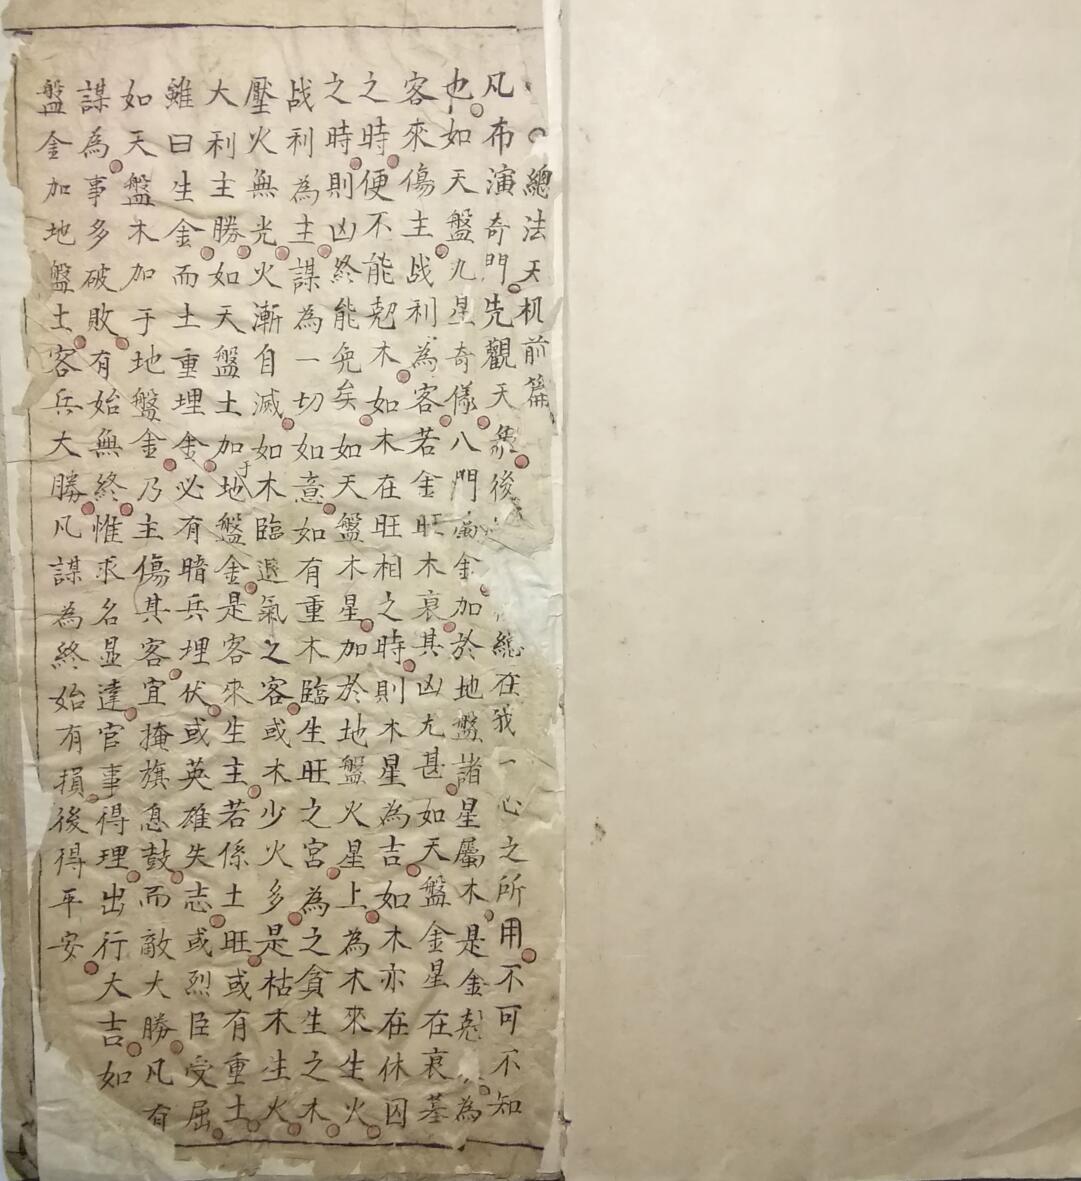 總法天机前篇
凡布演奇門先觀天象後總在我一心之所用不可不知
也如天盤九星奇樣八門屬金加於地盤諸星屬木是金尅為
客來傷主战利為客若金旺木衰其凶尤甚如天盤金星在衰墓
之時便不能尅木如木在旺相之時則木星為吉如木亦在休囚
之時則凶終能免矣如天盤木星加於地盤火星上為木來生火
战利為主謀為一切如意如有重木臨生旺之宮為之貪生之木
壓火無光火漸自滅如木臨退氣之客或木少火多是枯木生火
大利主勝如天盤土加于地盤金是客來生主若係土旺或有重土
雖曰生金而土重埋金必有暗兵埋伏或英雄失志或烈臣受屈
如天盤木加于地盤金乃主傷其客宜掩旗息鼓而敵大勝凡有
謀為事多破敗有始無終惟求名显達官事得理出行大吉如
盤金加地盤土客兵大勝凡謀為終始有損後得平安